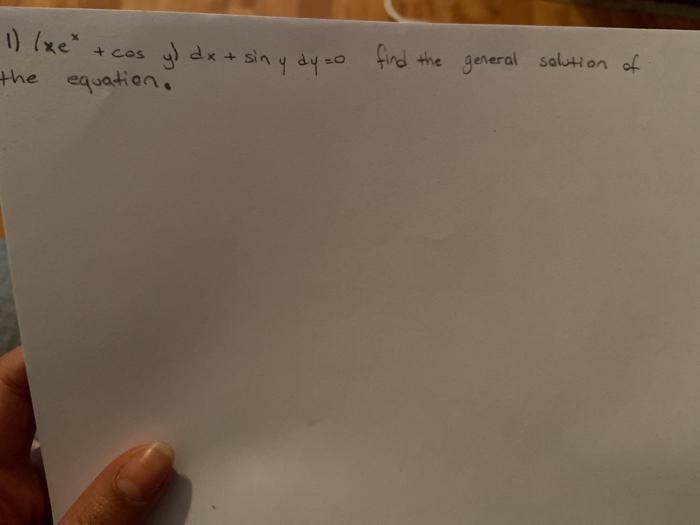 1) (xeˣ + cos y) dx + sin y dy =0 find the general solution of
the equation.